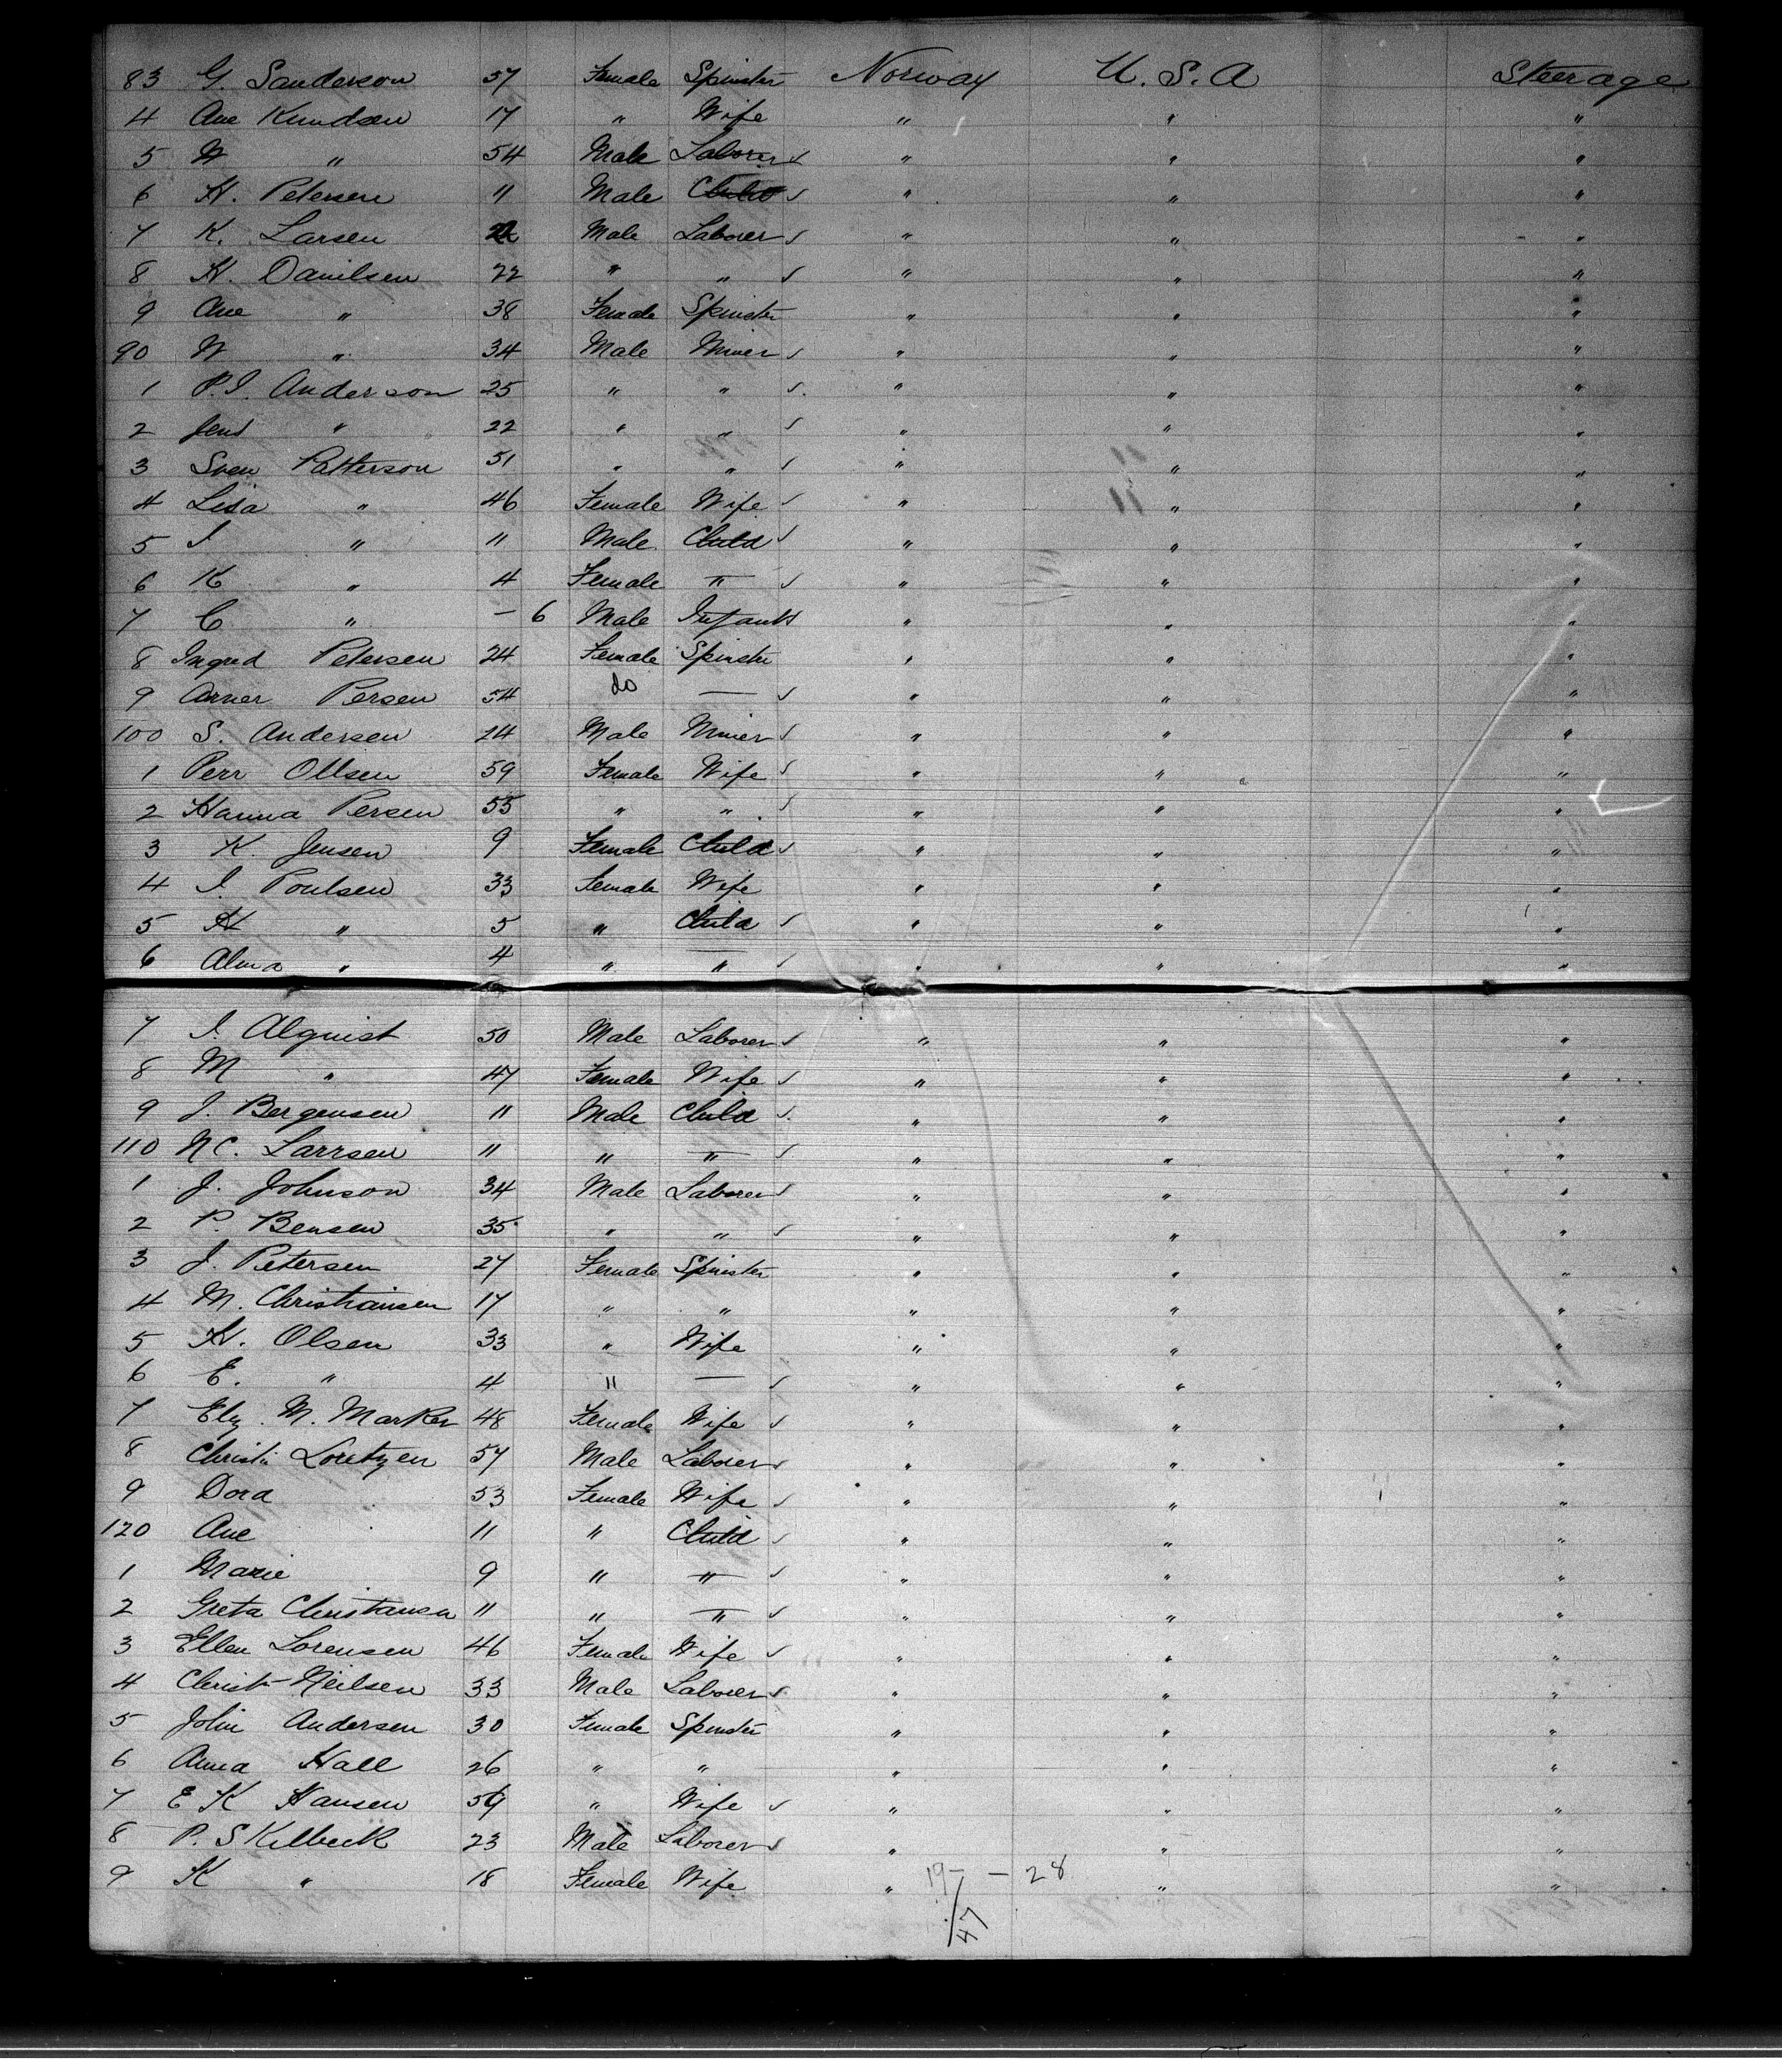 83 G. Sanderson 57 Female Spinster Norway U. S. A Steerage
4 Ane Knudsen 17 " Wife " " "
5 N " 54 Male Laborer " " "
6 H. Petersen 11 Male Child " " "
7 K. Larsen Male Laborer " " "
8 H. Danilsen 22 " " " " "
9 Ane " 38 Female Spinster " " "
90 N " 34 Male Miner " " "
1 P. I. Anderson 25 " " " " "
2 Jens " 22 " " " " "
3 Sven Patterson 51 " " " " "
4 Lisa " 46 Female Wife " " "
5 I " 11 Male Child " " "
6 K " 4 Female " " " "
7 C " - 6 Male Infant " " "
8 Ingred Petersen 24 Female Spinster " " "
9 Arner Persen 54 do — " " "
100 S. Andersen 24 Male Miner " " "
1 Perr Ollsen 59 Female Wife " " "
2 Hanna Persen 55 " " " " "
3 K. Jensen 9 Female Child " " "
4 I. Poulsen 33 Female Wife " " "
5 H " 5 " Child " " "
6 Alma " 4 " " " " "
7 I. Alquist 50 Male Laborer " " "
8 M " 47 Female Wife " " "
9 J. Bergensen 11 Male Child " " "
110 N C. Larrsen 11 " " " " "
1 J. Johnson 34 Male Laborer " " "
2 P. Bensen 35 " " " " "
3 J. Petersen 27 Female Spinster " " "
4 M. Christiansen 17 " " " " "
5 H. Olsen 33 " Wife " " "
6 E. " 4 " — " " "
7 Elz. M. Marker 48 Female Wife " " "
8 Christn Loretzen 57 Male Laborer " " "
9 Dora 53 Female Wife " " "
120 Ane 11 " Child " " "
1 Marie 9 " " " " "
2 Greta Christansen 11 " " " " "
3 Ellen Lorensen 46 Female Wife " " "
4 Christn Neilsen 33 Male Laborer " " "
5 John Andersen 30 Female Spinster " " "
6 Anna Hall 26 " " " " "
7 E K Hansen 59 " Wife " " "
8 P. Skilbeck 23 Male Laborer " " "
9 K " 18 Female Wife " " "
19 - - 28
/47